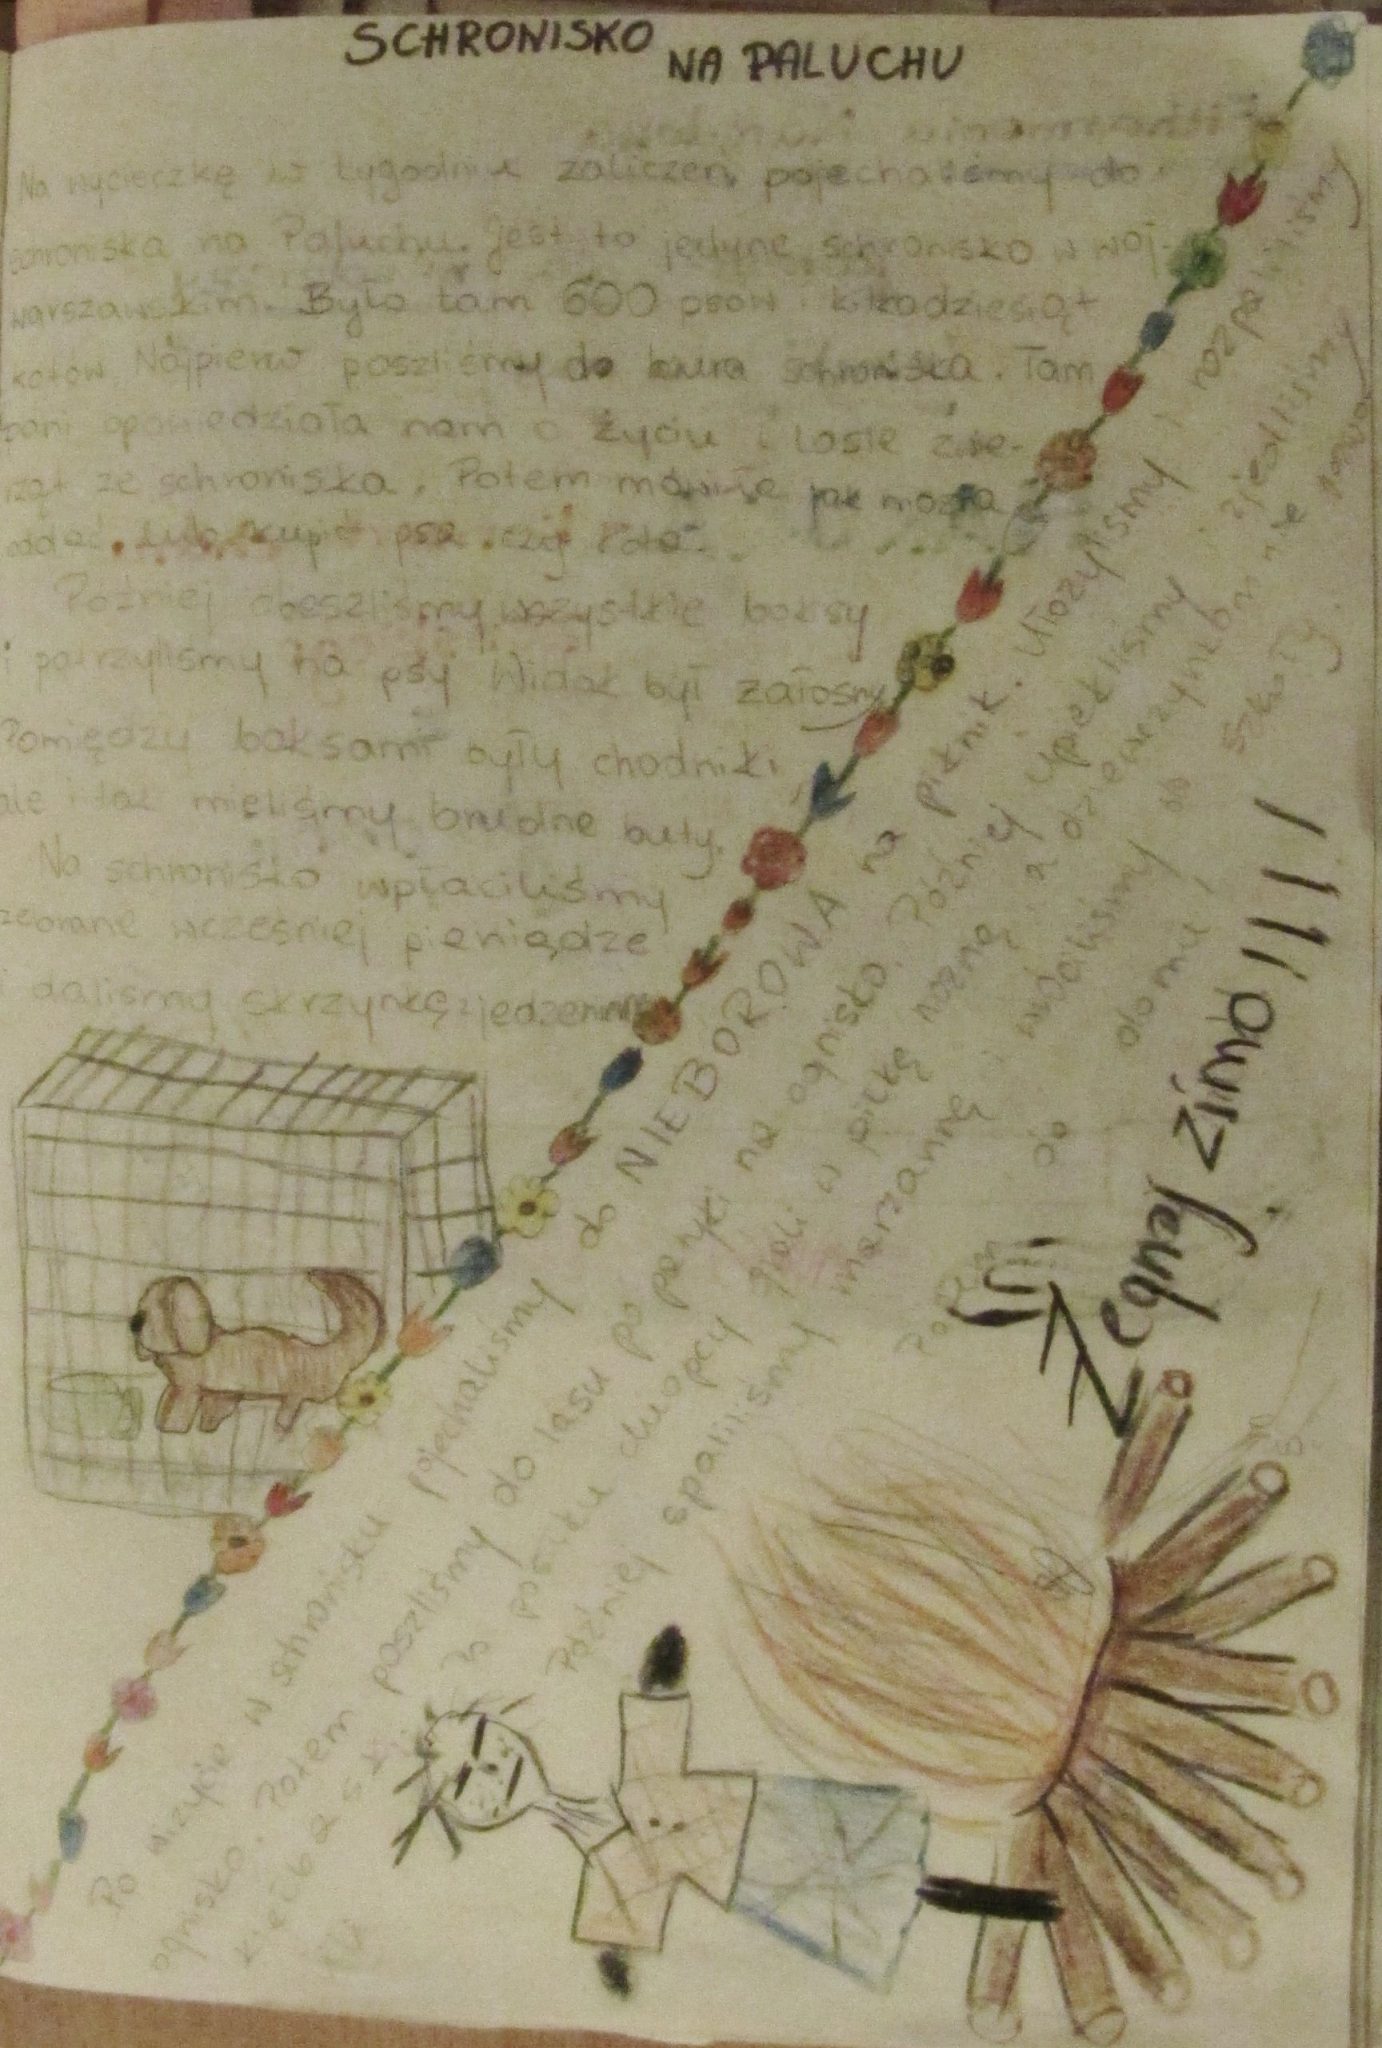 SCHRONISKO NA PALUCHU
Na wycieczkę w tygodniu zaliczeń pojechaliśmy do
schroniska na Paluchu. Jest to jedyne schronisko w woj.
warszawskim. Było tam 600 psów i kilkadziesiąt
kotów. Najpierw poszliśmy do biura schroniska. Tam
pani opowiedziała nam o życiu i losie zwie-
rząt ze schroniska. Potem mówiła jak można
oddać lub kupić psa czy kota.
Później obeszliśmy wszystkie boksy
i patrzyliśmy na psy Widok był żałosny
Pomiędzy boksami były chodniki
ale i tak mieliśmy brudne buty.
Na schronisko wpłaciliśmy
zebrane wcześniej pieniądze
i daliśmy skrzynkę z jedzeniem
Po wizycie w schronisku pojechaliśmy do NIEBOROWA na piknik. Ułożyliśmy i rozpaliliśmy
ognisko. Potem poszliśmy do lasu po patyki na ognisko. Później upiekliśmy i zjedliśmy
kiełbaski. Po posiłku chłopcy grali w piłkę nożną, a dziewczynkom nie
Później spaliliśmy marzannę i wróciliśmy do szkoły.
Potem do domu
Żegnaj zimo!!!!